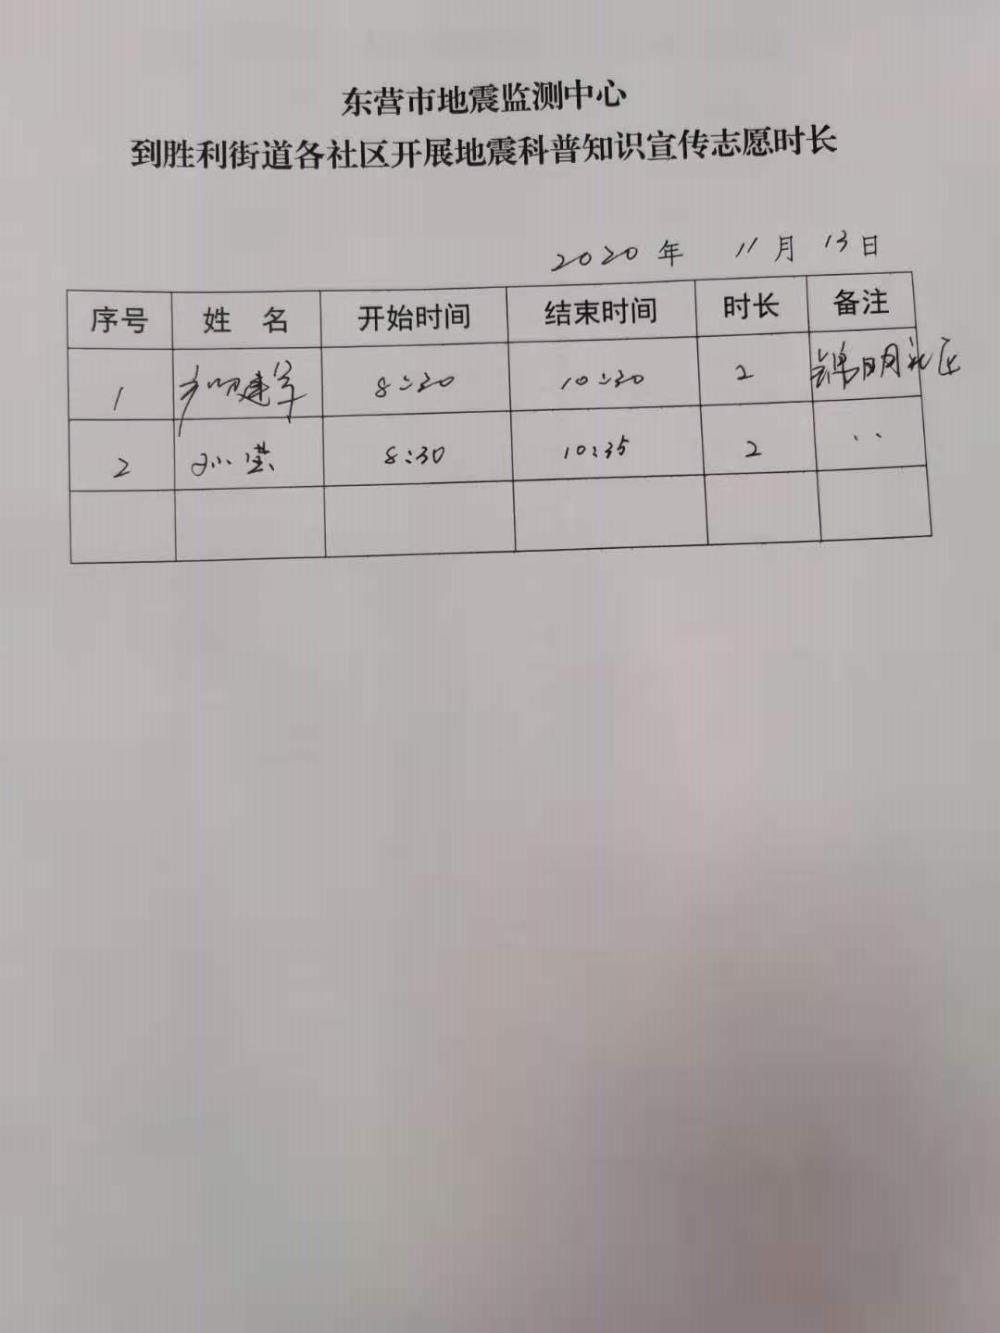 东营市地震监测中心
到胜利街道各社区开展地震科普知识宣传志愿时长
2020 年 11 月 13 日
序号 姓 名 开始时间 结束时间 时长 备注
1 建军 8:30 10:30 2 锦明社区
2 孙莹 8:30 10:35 2 ..